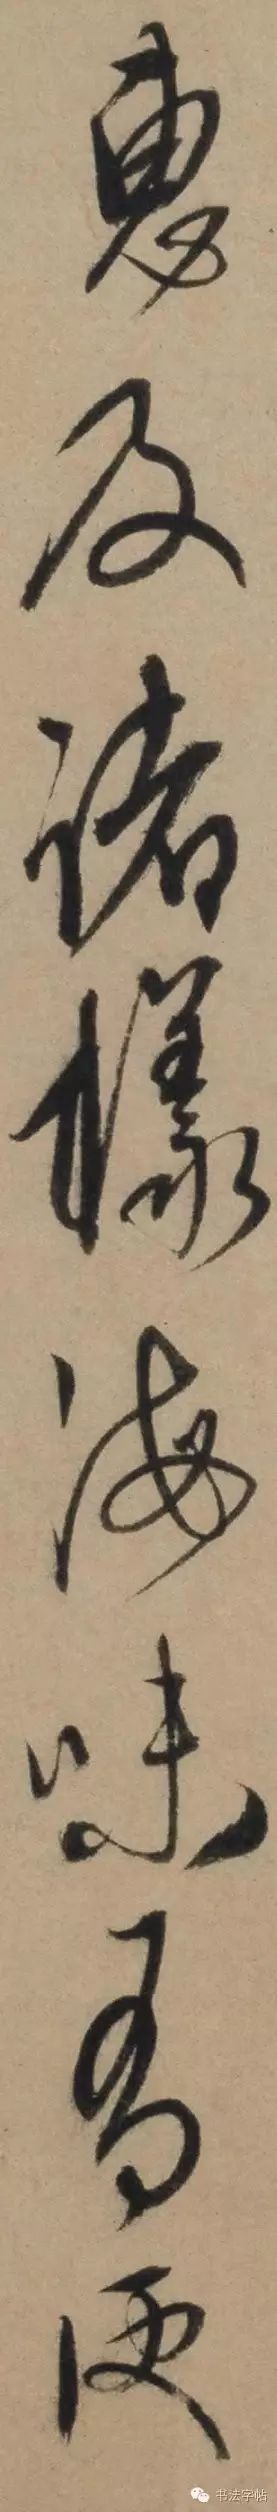 惠及諸樣海味有便
书法字帖